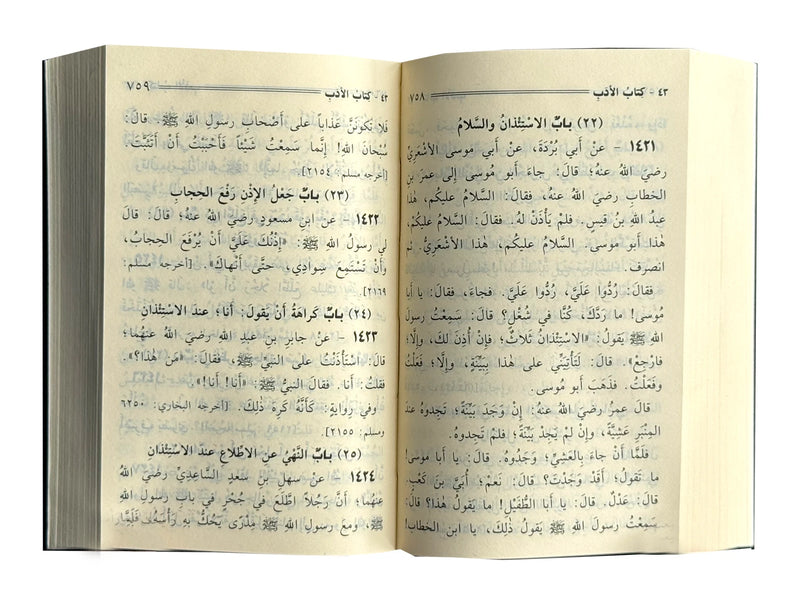 ٤٣ - كِتَابُ الأَدَبِ ٧٥٨
(٢٢) بابُ الاسْتِئْذانُ والسَّلامُ
١٤٢١ - عن أبي بُرْدَةَ، عن أبي موسى الأشْعَريِّ
رضيَ اللهُ عنهُ؛ قالَ: جاءَ أبو مُوسى إلى عمرَ بنِ
الخطابِ رضيَ اللهُ عنهُ، فقالَ: السَّلامُ عليكُم، هٰذا
عبدُ اللهِ بنُ قيسٍ. فلمْ يأْذَنْ لهُ. فقالَ: السَّلامُ عليكُمْ،
هٰذا أبو موسى. السَّلامُ عليكُم، هٰذا الأشْعَرِيُّ. ثم
انصرفَ.
فقالَ: رُدُّوا عَلَيَّ، رُدُّوا عَلَيَّ. فجاءَ، فقالَ: يا أبا
مُوسى! ما رَدَّكَ، كُنَّا في شُغْلٍ؟ قالَ: سَمِعْتُ رسولَ
اللهِ ﷺ يقولُ: «الاسْتِئْذانُ ثلاثٌ؛ فإنْ أُذِنَ لكَ، وإلَّا؛
فارْجِعْ». قالَ: لَتَأْتِيَنِّي على هٰذا بِبَيِّنَةٍ، وإلَّا؛ فَعَلْتُ
وفَعَلْتُ. فذهَبَ أبو مُوسى.
قالَ عمرُ رضيَ اللهُ عنهُ: إنْ وَجَدَ بَيِّنَةً؛ تَجِدوهُ عندَ
المِنْبَرِ عَشِيَّةً، وإنْ لمْ يَجِدْ بَيِّنَةً؛ فلم تَجِدوهُ.
فلَمَّا أنْ جاءَ بالعَشِيِّ؛ وَجَدُوهُ. قالَ: يا أبا موسى!
ما تَقولُ؛ أقَدْ وَجَدْتَ؟ قالَ: نَعَمْ؛ أُبَيَّ بنَ كَعْبٍ.
قالَ: عَدْلٌ. قالَ: يا أبا الطُّفَيْلِ! ما يَقُولُ هٰذا؟ قالَ:
سَمِعْتُ رسولَ اللهِ ﷺ يَقولُ ذٰلكَ، يا ابن الخطابِ!
٤٣ - كِتَابُ الأَدَبِ ٧٥٩
فَلا تَكُونَنَّ عَذَاباً على أصْحابِ رسولِ اللهِ ﷺ قالَ:
سُبْحانَ اللهِ! إنَّما سَمِعْتُ شَيْئاً فأَحْبَبْتُ أنْ أتَثَبَّتَ.
[أخرجه مسلم: ٢١٥٤]
(٢٣) بابُ جَعْلُ الإِذْنِ رَفْعَ الحِجابِ
١٤٢٢ - عن ابنِ مسعودٍ رضيَ اللهُ عنهُ؛ قالَ: قالَ
لي رسولُ اللهِ ﷺ: «إذْنُكَ عَلَيَّ أنْ يُرْفَعَ الحِجابُ،
وأنْ تَسْتَمِعَ سِوادِي، حتَّى أنْهاكَ». [أخرجه مسلم:
٢١٦٩].
(٢٤) بابُ كَراهَةُ أنْ يقولَ: أنا؛ عندَ الاسْتِئْذانِ
١٤٢٣ - عن جابرِ بنِ عبدِ اللهِ رضيَ اللهُ عنهُما؛
قالَ: اسْتَأْذَنْتُ على النبيِّ ﷺ، فقالَ: «مَن هٰذا؟».
فقلتُ: أنا. فقالَ النبيُّ ﷺ: «أنا! أنا!».
وفي روايةٍ: كأَنَّهُ كَرِهَ ذٰلِكَ. [أخرجه البخاري: ٦٢٥٠
ومسلم: ٢١٥٥].
(٢٥) بابُ النَّهْيُ عن الاطِّلاعِ عندَ الاسْتِئْذان
١٤٢٤ - عن سهلِ بنِ سَعدٍ السَّاعِديِّ رضيَ اللهُ
عنهُما؛ أنَّ رَجُلاً اطَّلَعَ في جُحْرٍ في بابِ رسولِ اللهِ
ﷺ، ومَعَ رسولِ اللهِ ﷺ مِدْرًى يَحُكُّ بهِ رأْسَهُ، فلَمَّا